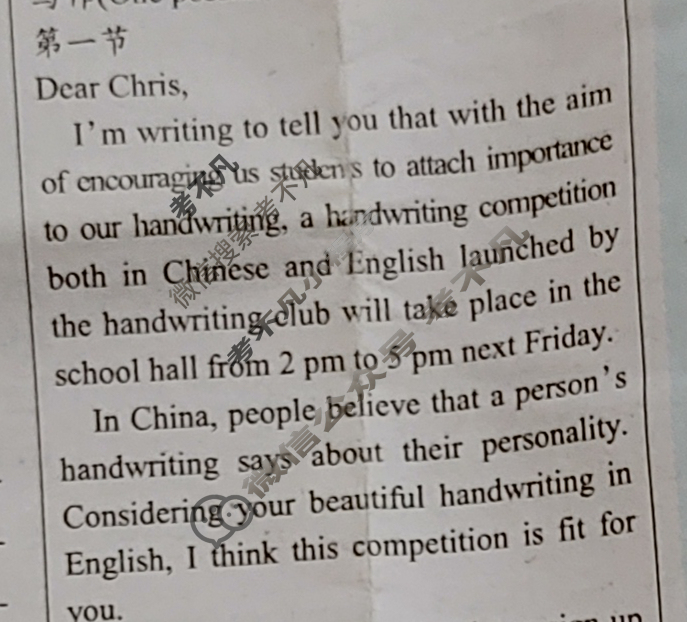 第一节
Dear Chris,
I'm writing to tell you that with the aim
of encouraging us students to attach importance
to our handwriting, a handwriting competition
both in Chinese and English launched by
the handwriting club will take place in the
school hall from 2 pm to 5 pm next Friday.
In China, people believe that a person's
handwriting says about their personality.
Considering your beautiful handwriting in
English, I think this competition is fit for
you.
up
考不凡
微信搜索考不凡小
考不凡
微信公众号 考不凡